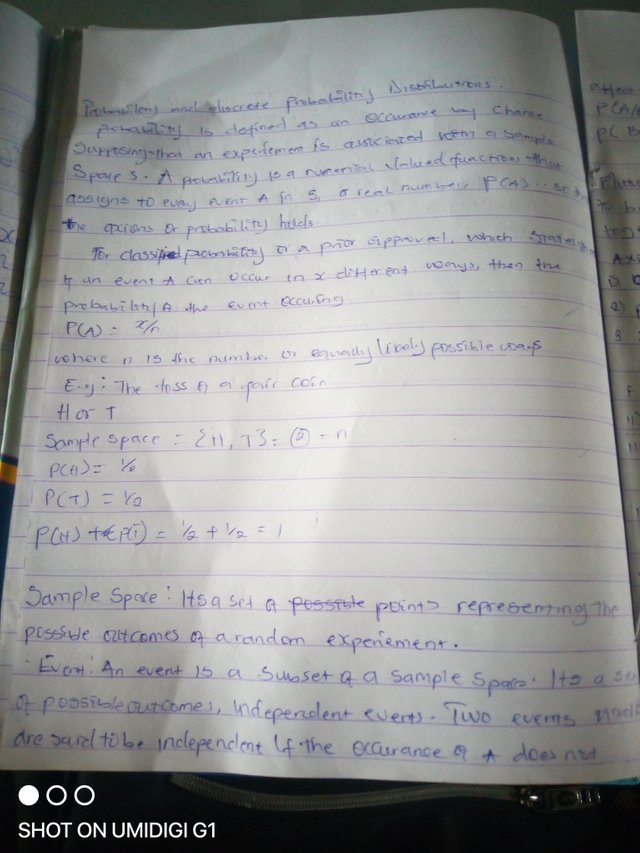 Probability and discrete Probability Distributions.
probability is defined as an occurance by chance
Supposing that an experiement is associated with a sample
Space S. A probability is a numerical valued function that
assigns to every event A in S, a real number, P(A)..
the axioms of probability holds.
For classified probability or a prior approved, which states
if an event A can occur in x different ways, then the
probability A the event occuring
P(A) = x/n
where n is the number of equally likely possible ways
E.g: The toss of a fair coin
H or T
Sample space = {H, T} = 2 = n
P(H) = 1/2
P(T) = 1/2
P(H) + P(T) = 1/2 + 1/2 = 1
Sample Space: Its a set of possible points representing the
possible outcomes of a random experiement.
Event: An event is a subset of a sample space. Its a set
of possible outcomes, independent events. Two events
are said to be independent if the occurance of A does not
affect
P(A/
P(B
SHOT ON UMIDIGI G1